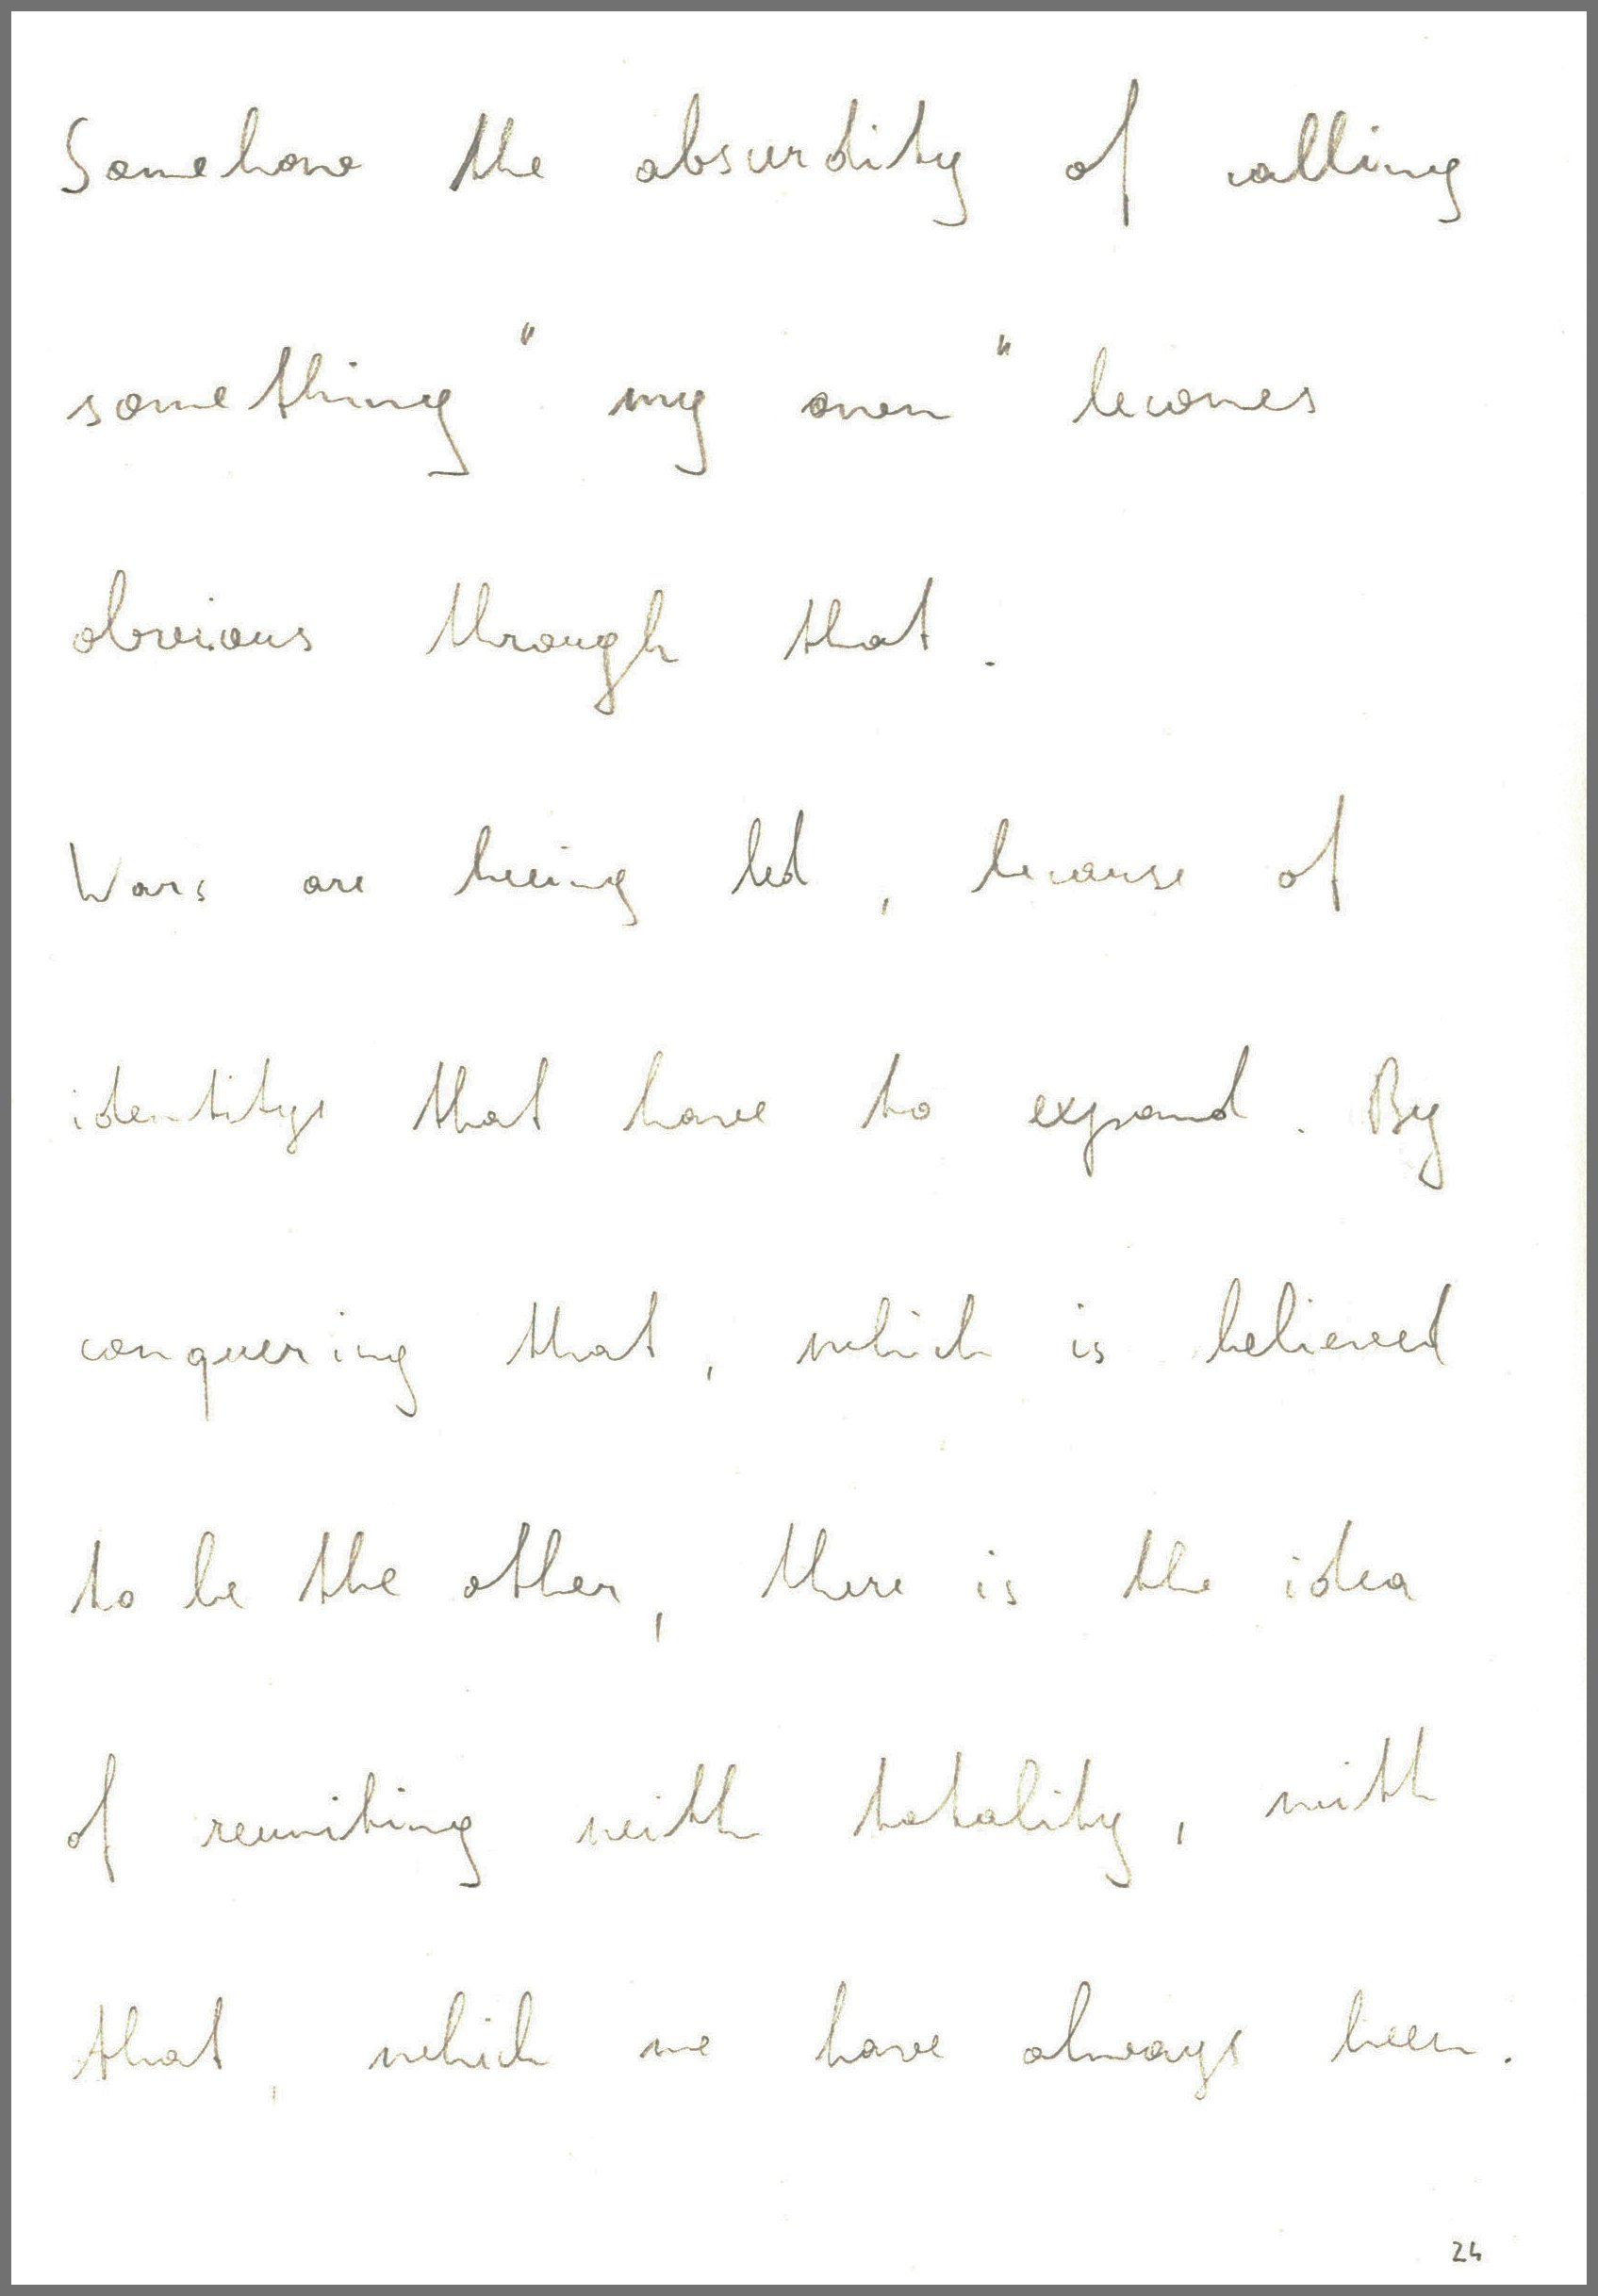 Somehow the absurdity of calling
something " my own " becomes
obvious through that .
Wars are being led , because of
identitys that have to expand . By
conquering that , which is believed
to be the other , there is the idea
of reuniting with totality , with
that , which we have always been .
24